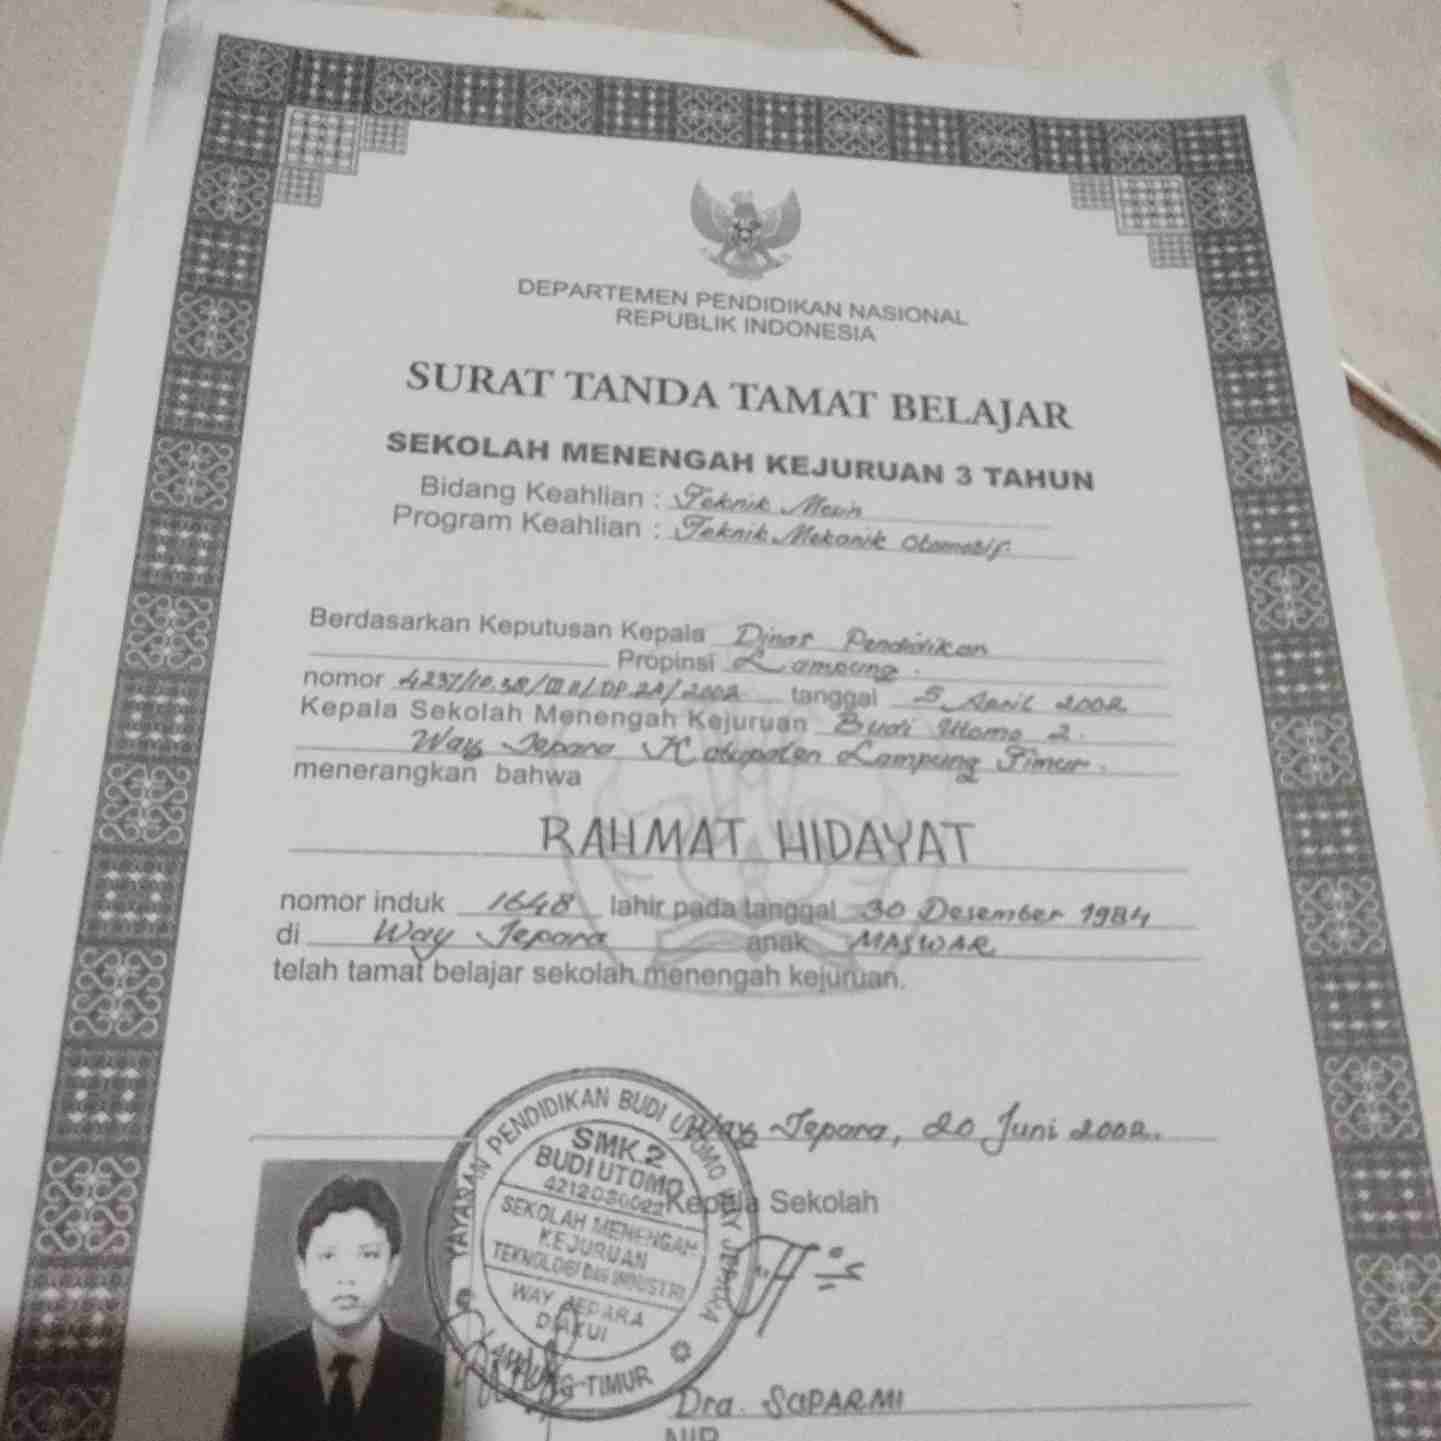 DEPARTEMEN PENDIDIKAN NASIONAL
REPUBLIK INDONESIA
SURAT TANDA TAMAT BELAJAR
SEKOLAH MENENGAH KEJURUAN 3 TAHUN
Bidang Keahlian : Teknik Mesin
Program Keahlian : Teknik Mekanik Otomotif
Berdasarkan Keputusan Kepala Dinas Pendidikan
Propinsi Lampung.
nomor tanggal 5 April 2002
Kepala Sekolah Menengah Kejuruan Budi Utomo 2.
Way Jepara Kabupaten Lampung Timur.
menerangkan bahwa
RAHMAT HIDAYAT
nomor induk 1648 lahir pada tanggal 30 Desember 1984
di Way Jepara anak MASWAR
telah tamat belajar sekolah menengah kejuruan.
Way Jepara, 20 Juni 2002.
Kepala Sekolah
YAYASAN PENDIDIKAN BUDI UTOMO WAY JEPARA
SMK.2
BUDI UTOMO
SEKOLAH MENENGAH
KEJURUAN
TEKNOLOGI DAN INDUSTRI
WAY JEPARA
DIAKUI
LAMPUNG-TIMUR
Dra. SAPARMI
NIP